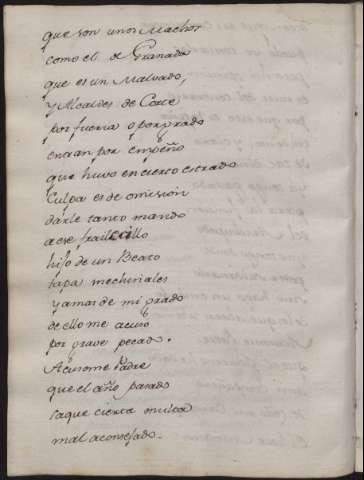 que son unos Machos
como el de Granada
que es un Malvado,
y Alcaldes de Corte
por fuerza o por grado
entran por empeño
que huvo en cierto estrado
Culpa es de omision
darle tanto mando
a ese frailecillo
hijo de un Beato
tapa mechinales
y amas de mi grado
de ello me acuso
por grave pecado.
Acusome Padre
que el año pasado
saque cierta multa
mal aconsejado.